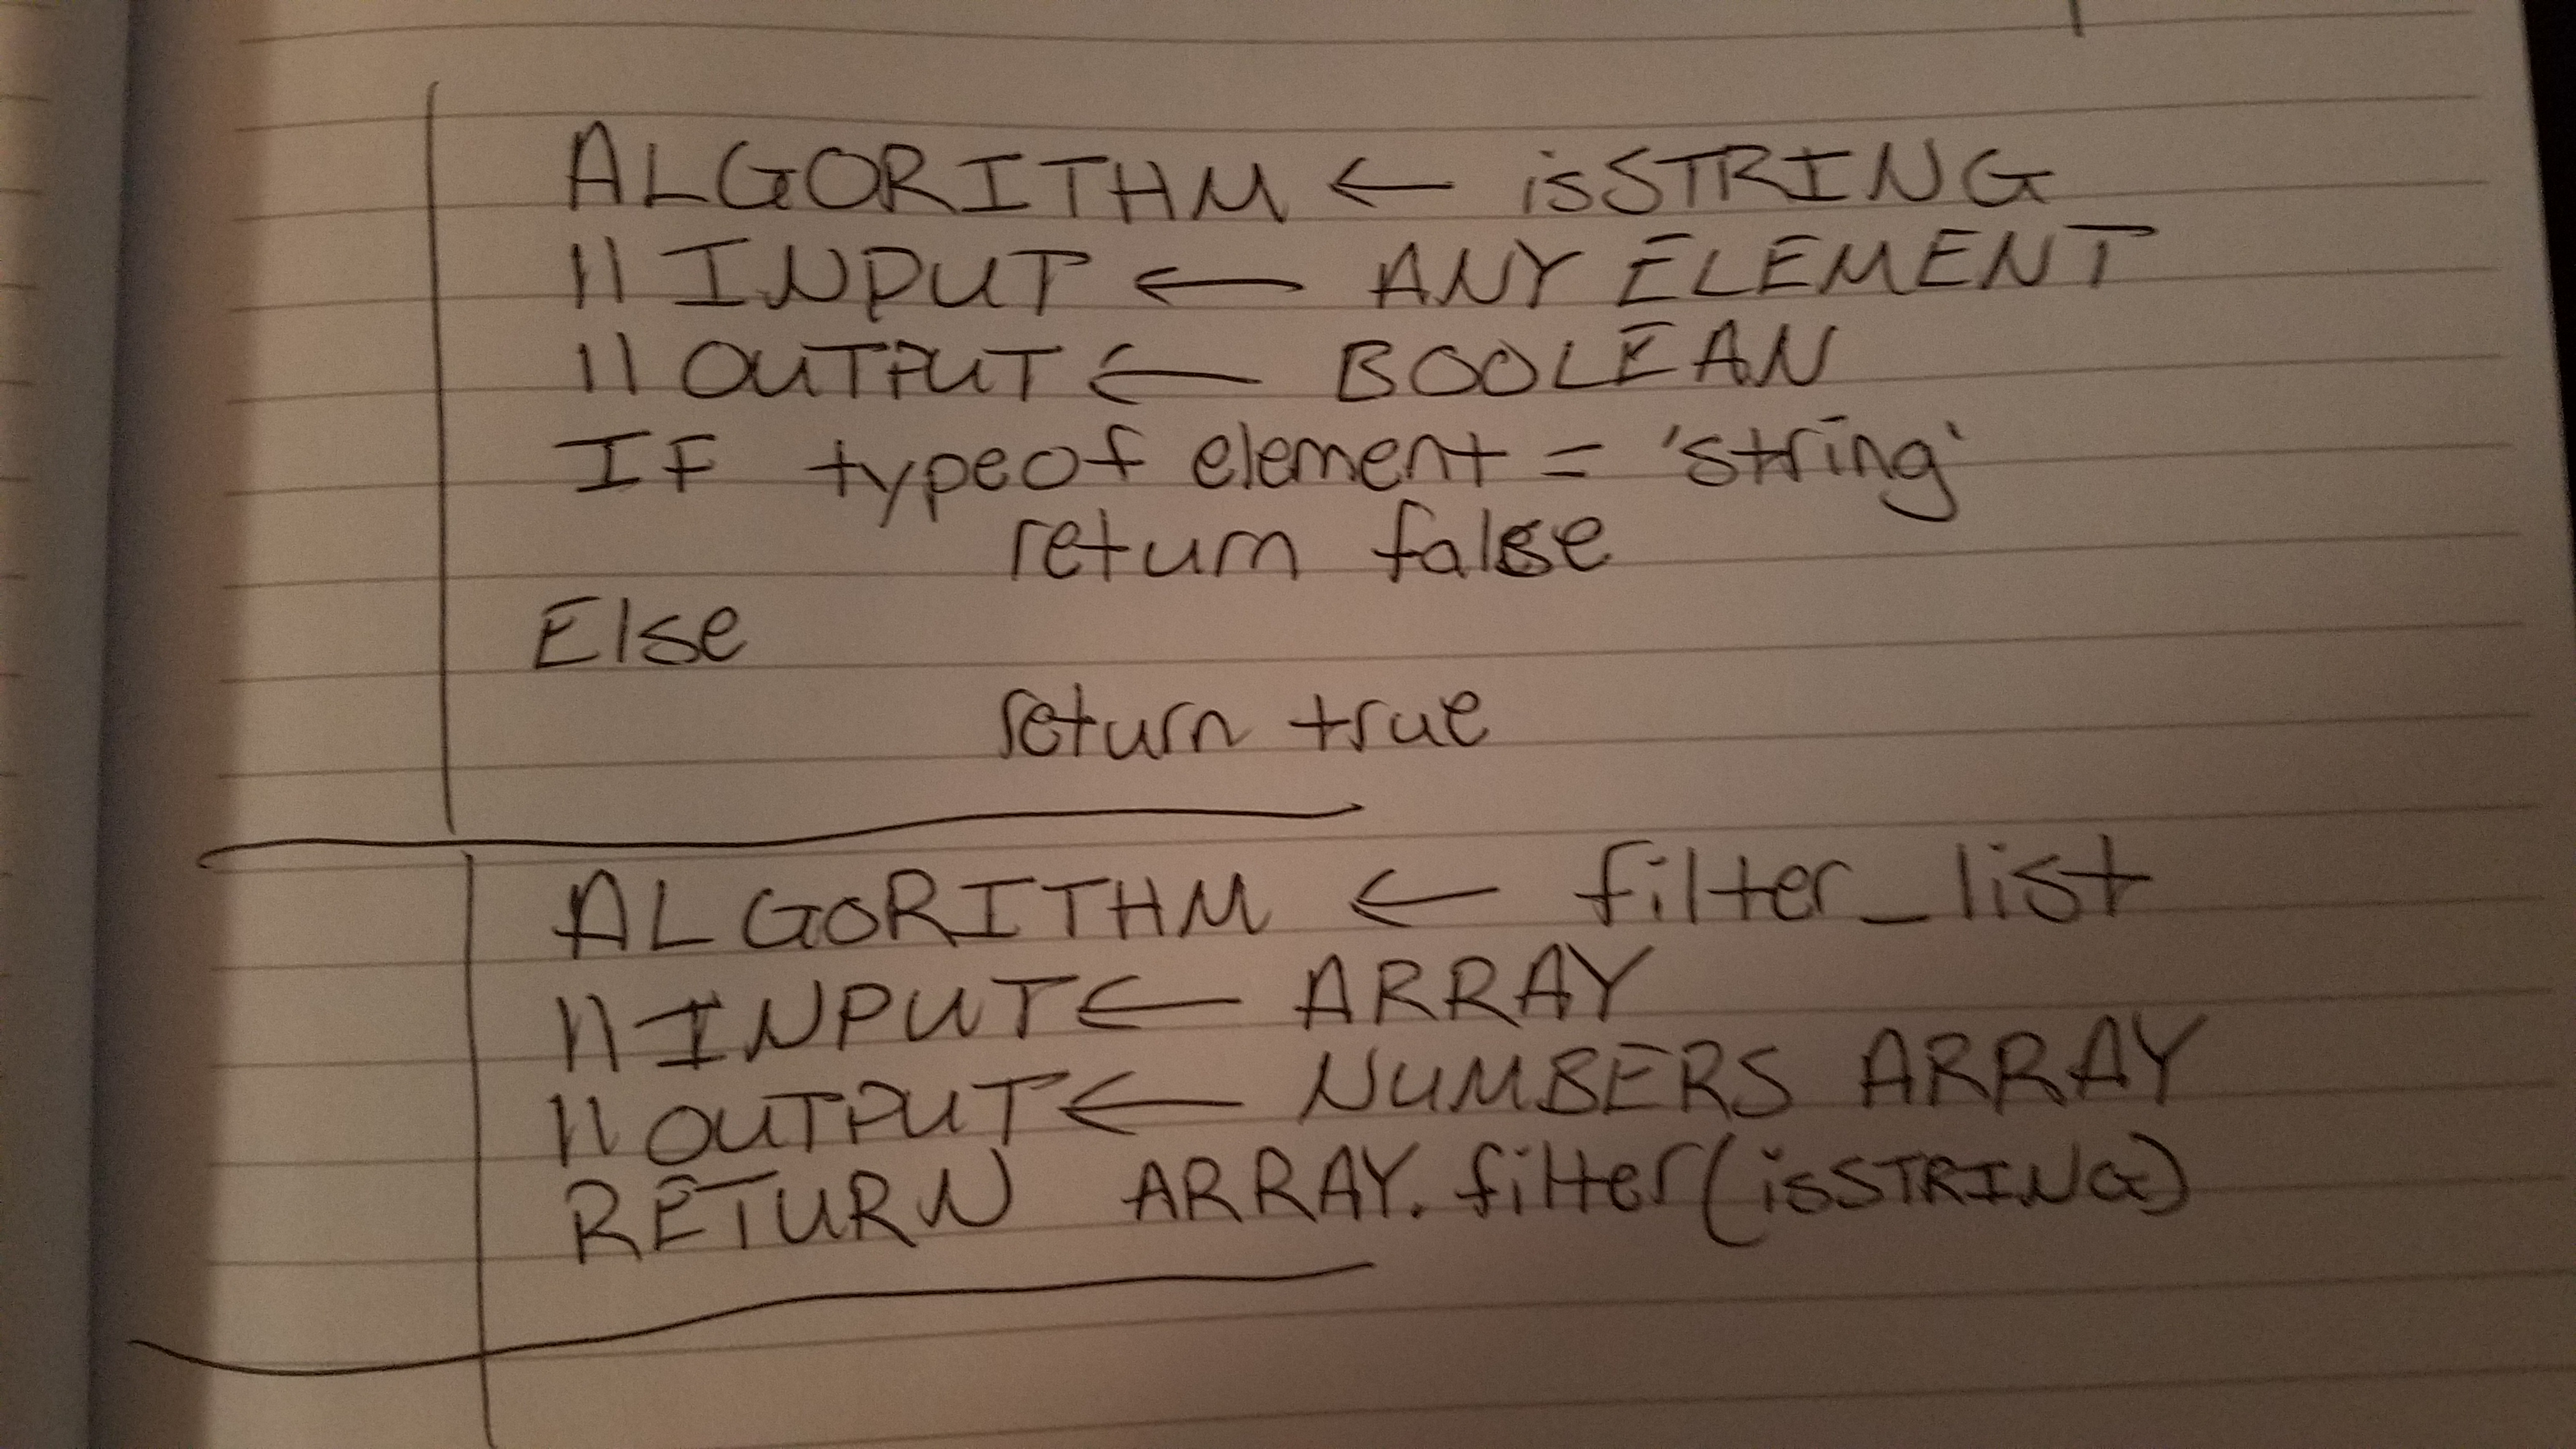 ALGORITHM ← isSTRING
// INPUT ← ANY ELEMENT
// OUTPUT ← BOOLEAN
IF typeof element = 'string'
return false
Else
return true
ALGORITHM ← filter_list
// INPUT ← ARRAY
// OUTPUT ← NUMBERS ARRAY
RETURN ARRAY.filter(isSTRING)